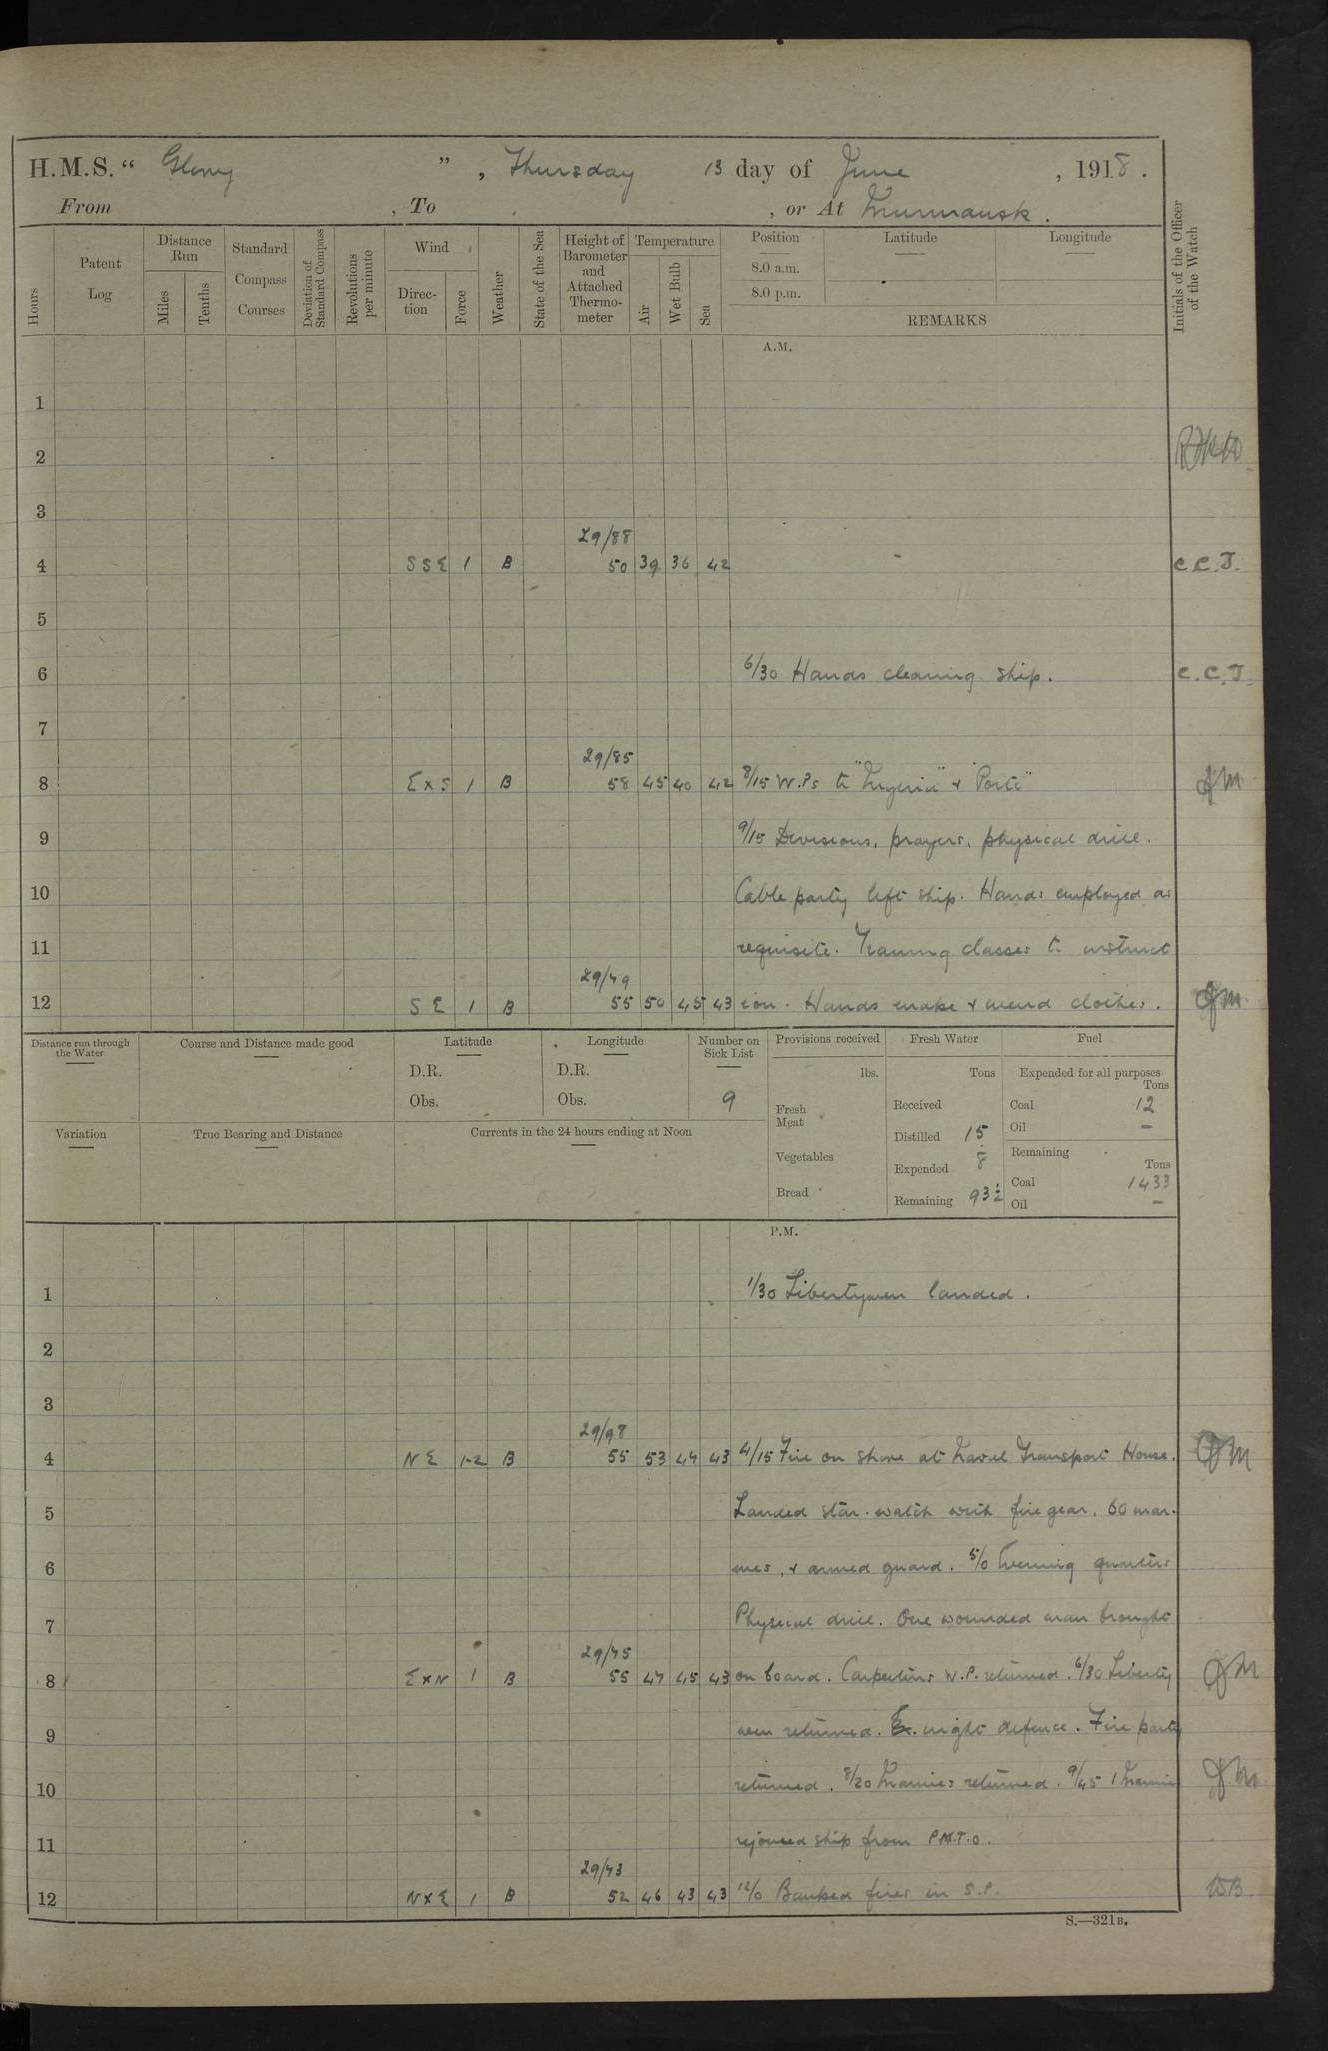 H.M.S. “ Glory ” , Thursday 13 day of June , 1918 .
From , To , or At Murmansk .
Hours Patent Log Distance Run Miles Tenths Standard Compass Courses Deviation of Standard Compass Revolutions per minute Wind Direc- tion Force Weather State of the Sea Height of Barometer and Attached Thermo- meter Temperature Air Wet Bulb Sea Position 8.0 a.m. 8.0 p.m. Latitude Longitude REMARKS Initials of the Officer of the Watch
A.M.
1
2
3
29/88
4 SSE 1 B 50 39 36 42 C.C.J.
5
6 6/30 Hands cleaning ship. C.C.J.
7
29/85
8 ExS 1 B 58 45 40 42 8/15 W.Ps to "Nigeria" & "Porto"
9 9/15 Divisions, prayers, physical drill.
10 Cable party left ship. Hands employed as
11 requisite. Training classes to instruct
29/79
12 SE 1 B 55 50 45 43 ion. Hands make & mend clothes.
Distance run through the Water Course and Distance made good Latitude Longitude Number on Sick List Provisions received Fresh Water Fuel
D.R. D.R. lbs. Tons Expended for all purposes Tons
Obs. Obs. 9 Fresh Meat Received Coal 12
Oil —
Variation True Bearing and Distance Currents in the 24 hours ending at Noon Distilled 15
Vegetables Expended 8 Remaining Tons
Coal 1433
Bread Remaining 93½ Oil —
P.M.
1 1/30 Libertymen landed.
2
3
29/98
4 NE 1-2 B 55 53 47 43 4/15 Fire on shore at Naval Transport House.
5 Landed star. watch with fire gear, 60 mar-
6 ines, & armed guard. 5/0 Evening quarters
7 Physical drill. One wounded man brought
29/75
8 ExN 1 B 55 47 45 43 on board. Carpenters W.P. returned. 6/30 Liberty
9 men returned. Ex. night defence. Fire party
10 returned. 8/20 Marines returned. 9/45 1 Marine
11 rejoined ship from P.N.T.O.
29/73
12 NxE 1 B 52 46 43 43 12/0 Banked fires in S.P. WB
S.—321B.